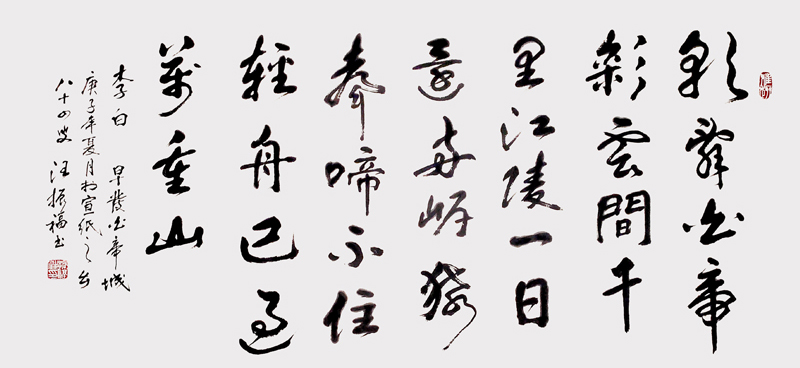 朝辭白帝
彩雲間千
里江陵一日
還兩岸猿
聲啼不住
輕舟已過
萬重山
李白 早發白帝城
庚子年夏月於宣紙之乡
八十四叟 汪振福书